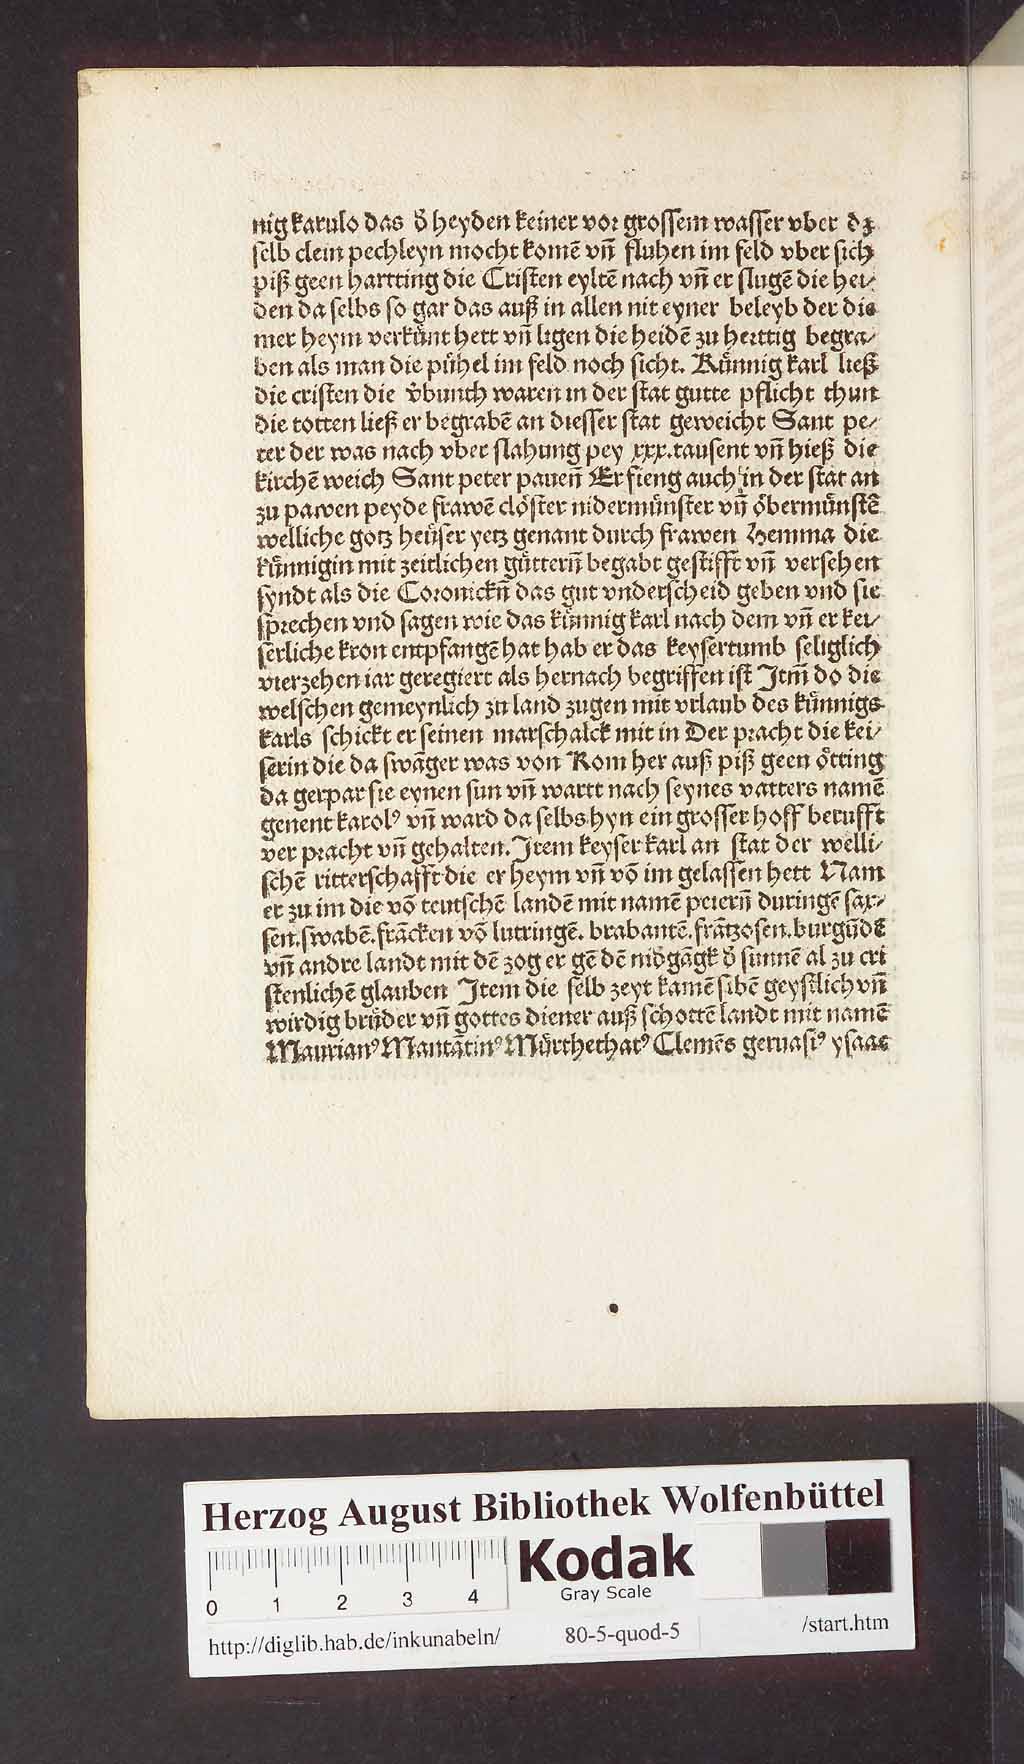 nig karulo das d̕ heyden keiner vor grossem wasser vber dz
selb clein pechleyn mocht komē vn̄ fluhen im feld vber sich
piß geen hartting die Cristen eyltē nach vn̄ er slugē die hei⸗
den da selbs so gar das auß in allen nit eyner beleyb der die
mer heym verkuͤnt hett vn̄ ligen die heidē zu herttig begra⸗
ben als man die puͤhel im feld noch sicht. Kuͤnnig karl ließ
die cristen die v̕bunth waren in der stat gutte pflicht thun
die totten ließ er begrabē an diesser stat geweicht Sant pe⸗
ter der was nach vber slahung pey xxx.tausent vn̄ hieß die
kirchē weich Sant peter pauen̄ Er fieng auch in der stat an
zu pawen peyde frawē cloͤster nidermuͤnster vn̄ oͤbermuͤnstē
welliche gotz heuͤser yetz genant durch frawen Hemma die
kuͤnnigin mit zeitlichen guͤttern̄ begabt gestifft vn̄ versehen
syndt als die Coronickn̄ das gut vnderscheid geben vnd sie
sprechen vnd sagen wie das kuͤnnig karl nach dem vn̄ er kei⸗
serliche kron entpfangē hat hab er das keysertumb seliglich
vierzehen iar geregiert als hernach begriffen ist Itm̄ do die
welschen gemeynlich zu land zugen mit vrlaub des kuͤnnigs
karls schickt er seinen marschalck mit in Der pracht die kei⸗
serin die da swanger was von Rom her auß piß geen oͤtting
da gerpar sie eynen sun vn̄ wartt nach seynes vatters namē
genent karolꝰ vn̄ ward da selbs hyn ein grosser hoff berufft
ver pracht vn̄ gehalten. Item keyser karl an stat der welli⸗
schē ritterschafft die er heym vn̄ vō im gelassen hett Nam
er zu im die vō teutschē landē mit namē peiern̄ duringē sax⸗
sen.swabē.frācken vō lutringē. brabantē.frātzosen.burgūdē
vn̄ andre landt mit dē zog er gē dē nid̕gāgk d̕ sunnē al zu cri
stenlichē glauben Item die selb zeyt kamē sibē geystlich vn̄
wirdig bruͤder vn̄ gottes diener auß schottē landt mit namē
Maurianꝰ Mantātinꝰ Muͤrthethatꝰ Clemēs geruasiꝰ ysaac
Herzog August Bibliothek Wolfenbüttel
Kodak
Gray Scale
0 1 2 3 4
http://diglib.hab.de/inkunabeln/ 80-5-quod-5 /start.htm